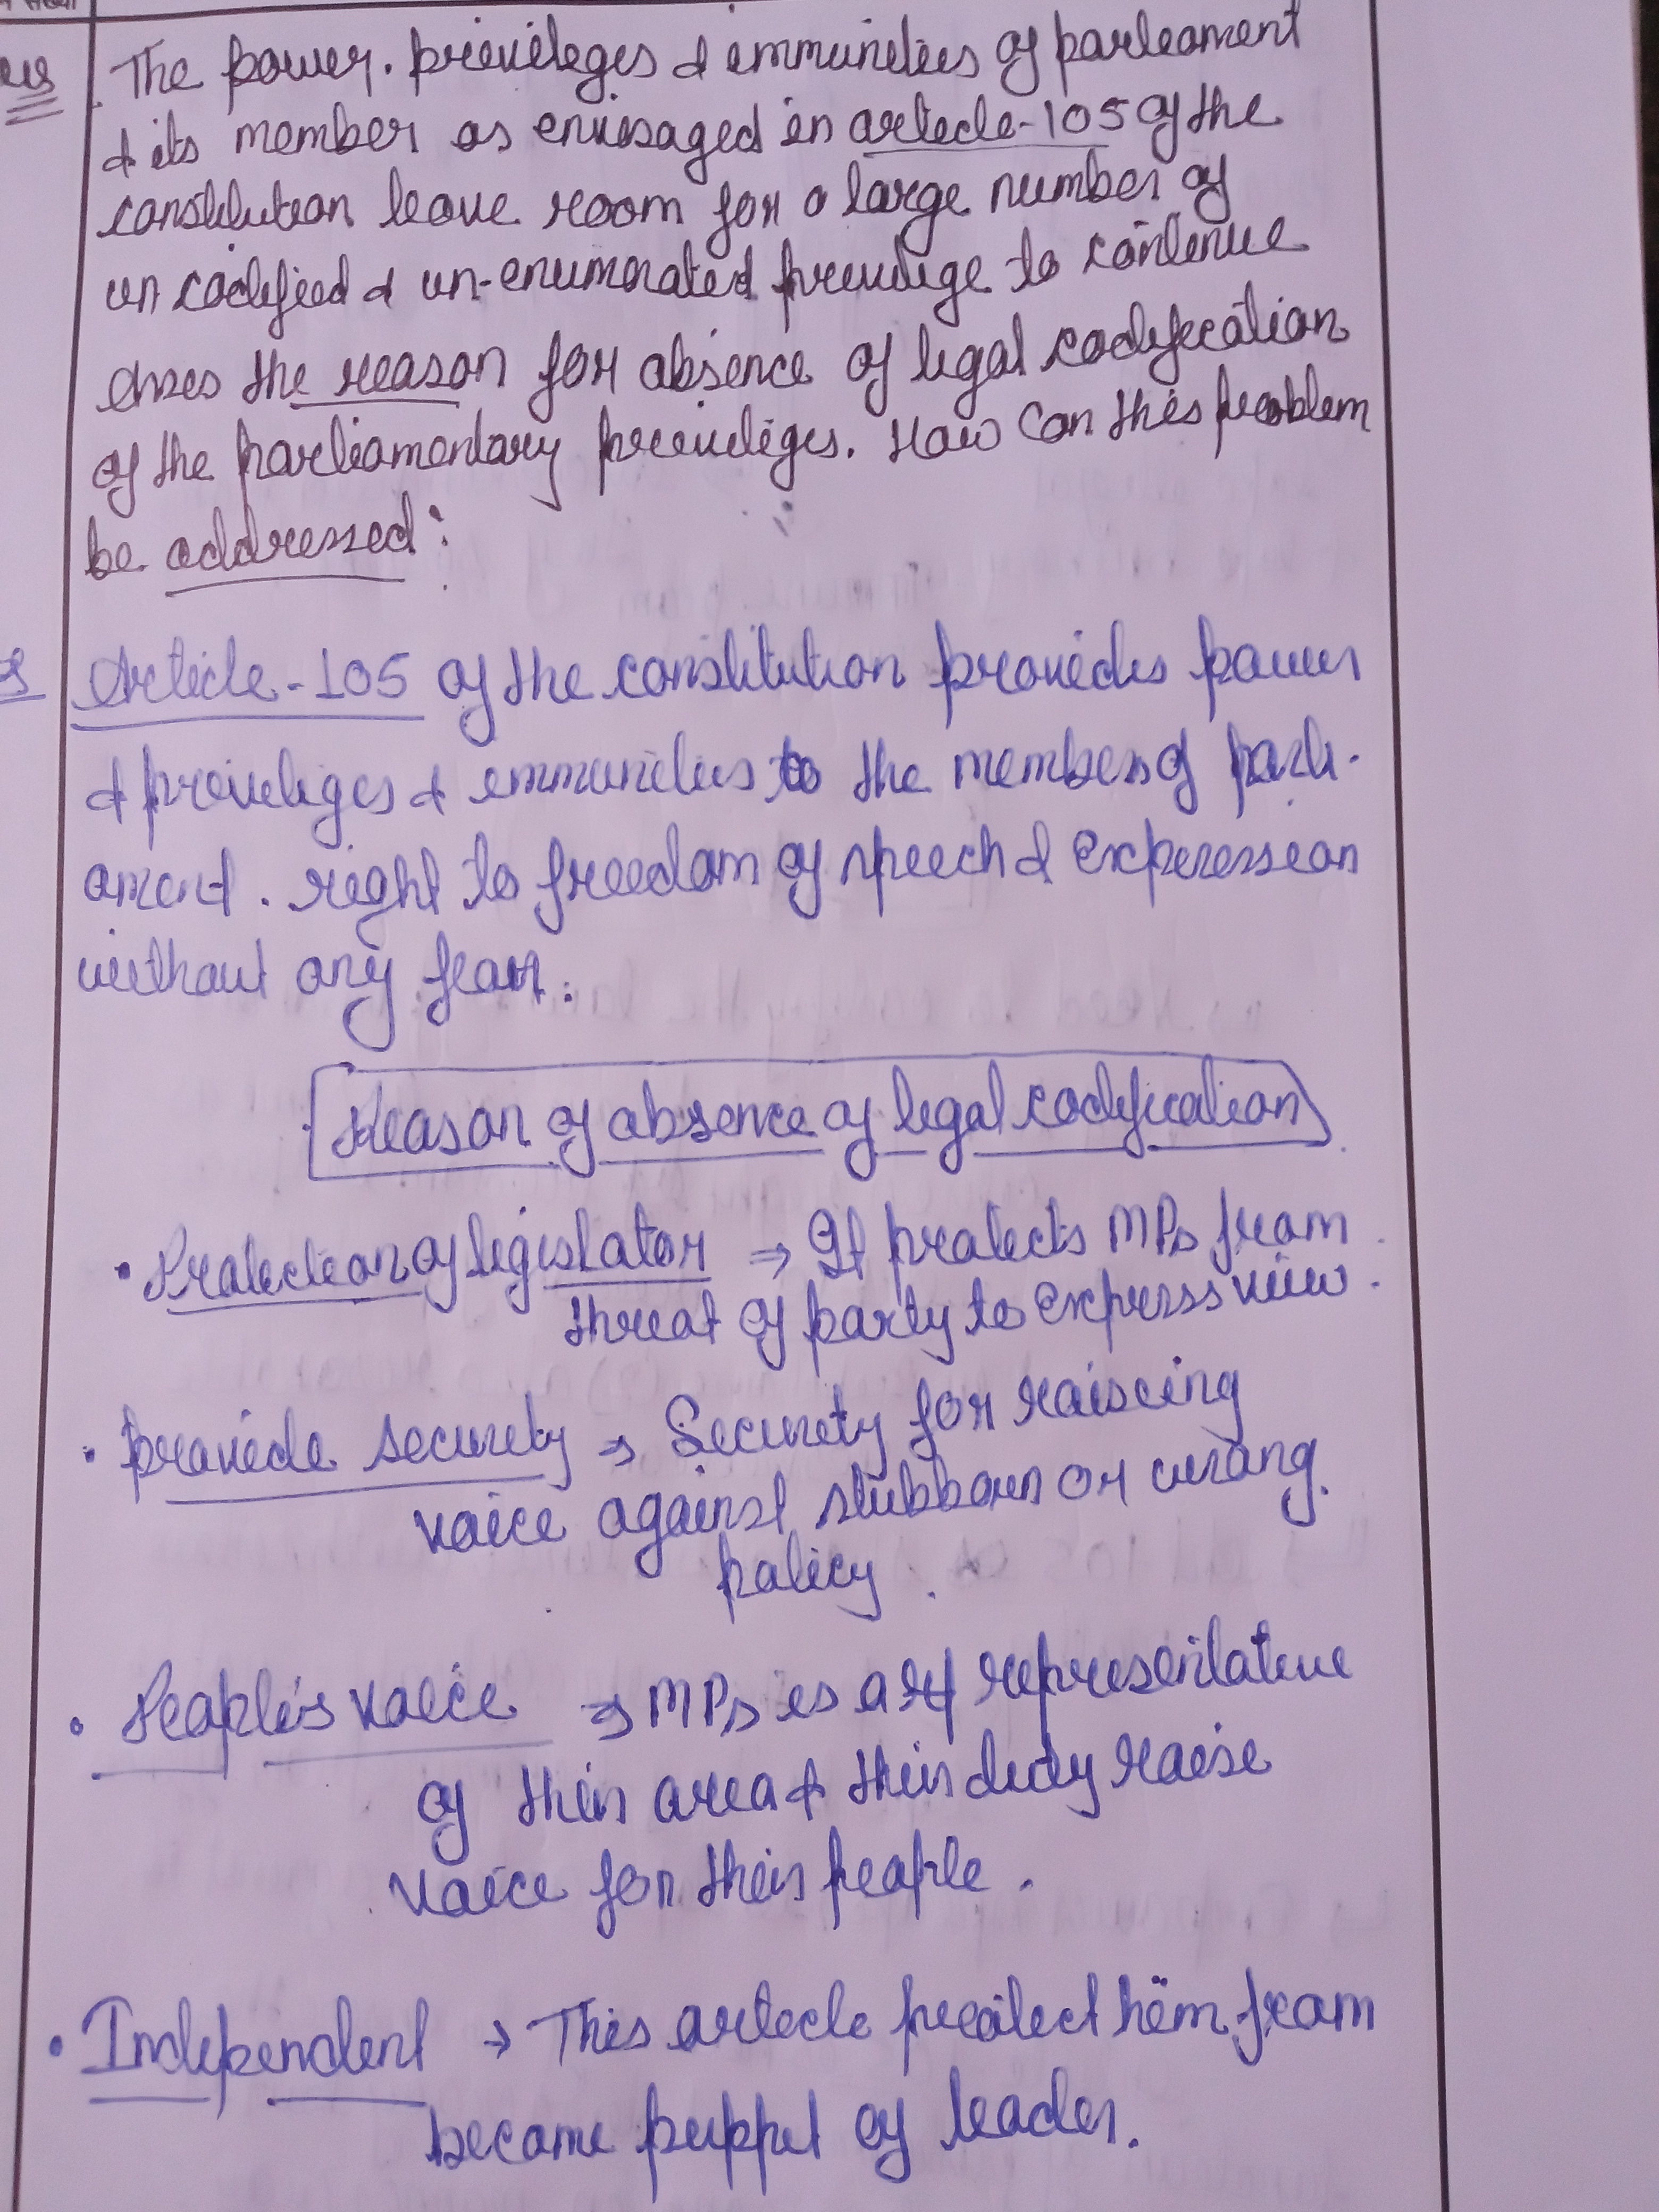 The power. privileges & immunities of parliament
& its member as envisaged in article-105 of the
constitution leave room for a large number of
un codified & un-enumerated privilege to continue
the reason for absence of legal codification
of the parliamentary privileges. How can this problem
be addressed?
Article-105 of the constitution provides power
& privileges & immunities to the members of parli-
ament. right to freedom of speech & expression
without any fear.
Reason of absence of legal codification
• Protection of legislator ⇒ It protects MPs from
threat of party to express view.
• provide security ⇒ Security for raiseing
voice against stubborn or wrong
policy.
• People's voice ⇒ MPs is a representative
of their area & their duty raise
voice for their people.
• Independent → This article protect them from
become puppet of leader.